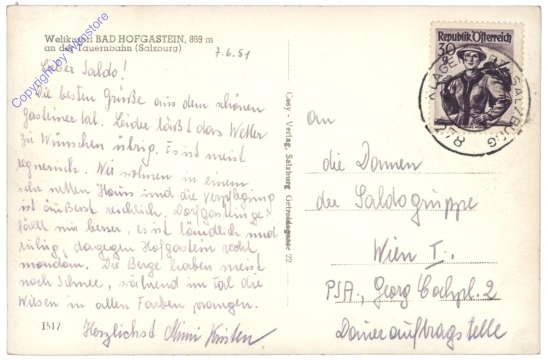 Weltkurort BAD HOFGASTEIN, 869 m
an der Tauernbahn (Salzburg)
Copyright by Wienstore
7.6.51
Lieber Saldo!
Die besten Grüße aus dem schönen
Gasteiner tal. Leider läßt das Wetter
zu Wünschen übrig. Es ist meist
regnerisch. Wir wohnen in einem
sehr netten Haus und die Verpflegung
ist äußerst reichlich. Dorfgastein ge-
fällt mir besser, es ist ländlich und
ruhig, dagegen Hofgastein recht
mondän. Die Berge haben meist
noch Schnee, während im Tal die
Wiesen in allen Farben prangen.
Herzlichst Mimi
1517
Cosy - Verlag, Salzburg Getreidegasse 22
Republik Österreich
30
SALZBURG
an
die Damen
der Saldogruppe
Wien I.
PSA, Georg Cochpl. 2
Dauerauftragstelle